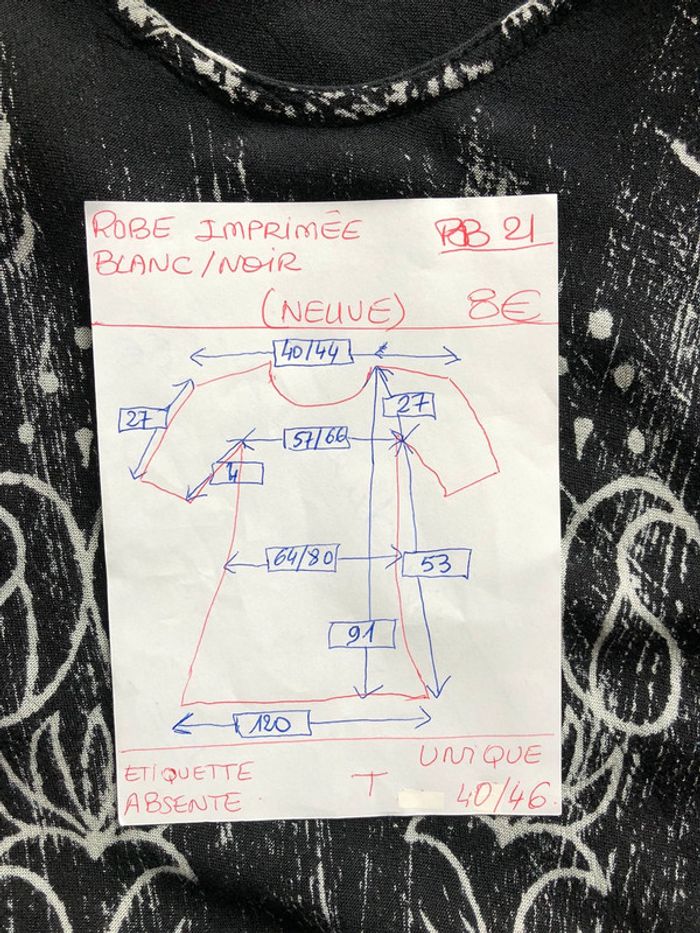 ROBE IMPRIMÉE BB 21
BLANC/NOIR
(NEUVE) 8€
40/44
27
27
57/66
4
64/80
53
91
120
ETIQUETTE T UNIQUE
ABSENTE 40/46